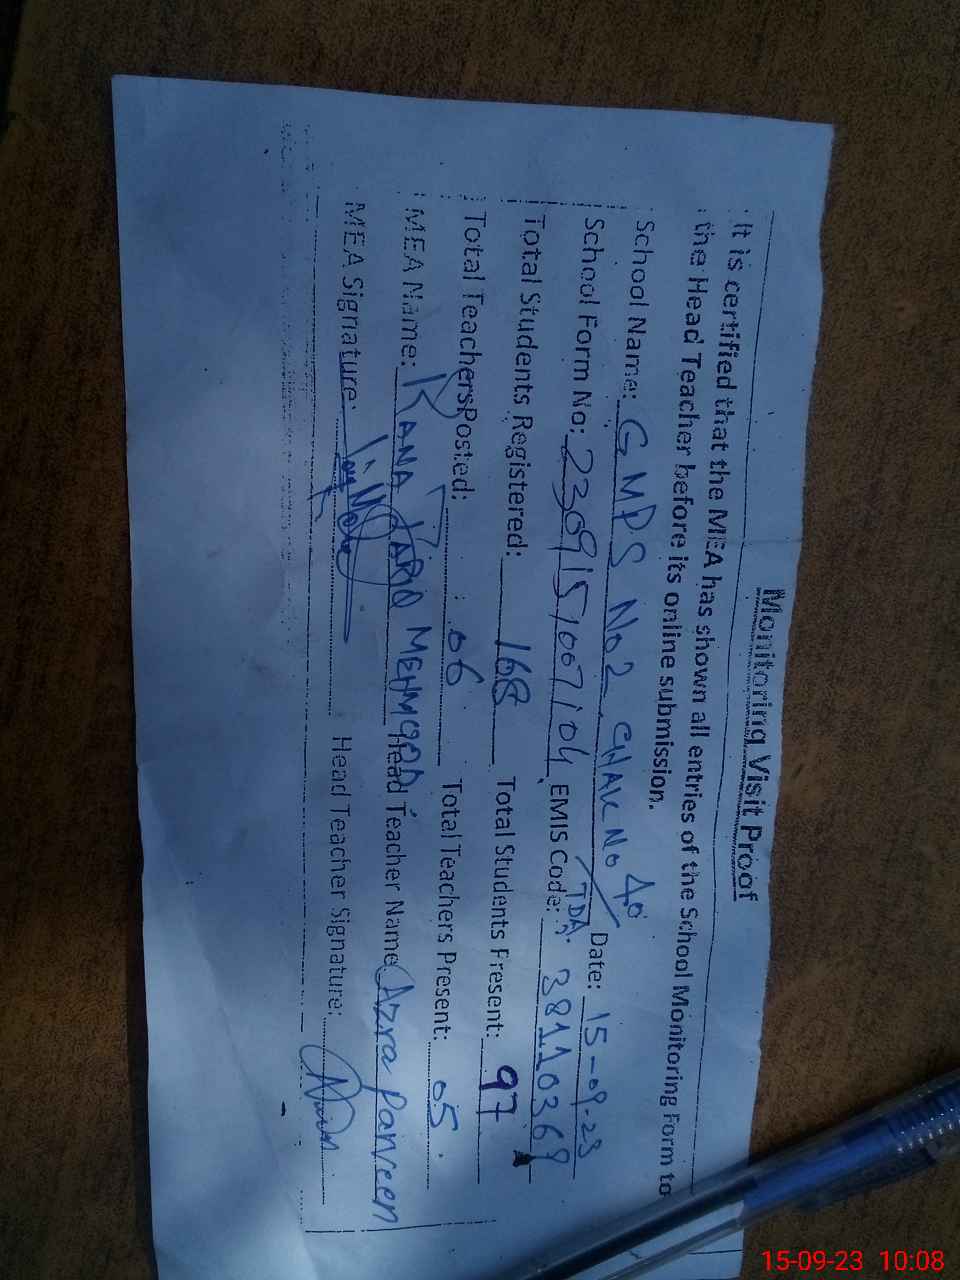 Monitoring Visit Proof
It is certified that the MEA has shown all entries of the School Monitoring Form to
the Head Teacher before its online submission.
School Name: GMPS No 2 CHAK NO 40/TDA. Date: 15-09-23
School Form No: 2309151007104 EMIS Code: 38110369
Total Students Registered: 168 Total Students Present: 97
Total Teachers Posted: 06 Total Teachers Present: 05
MEA Name: RANA TARIQ MEHMOOD Head Teacher Name Azra Parveen
MEA Signature: Head Teacher Signature:
15-09-23 10:08